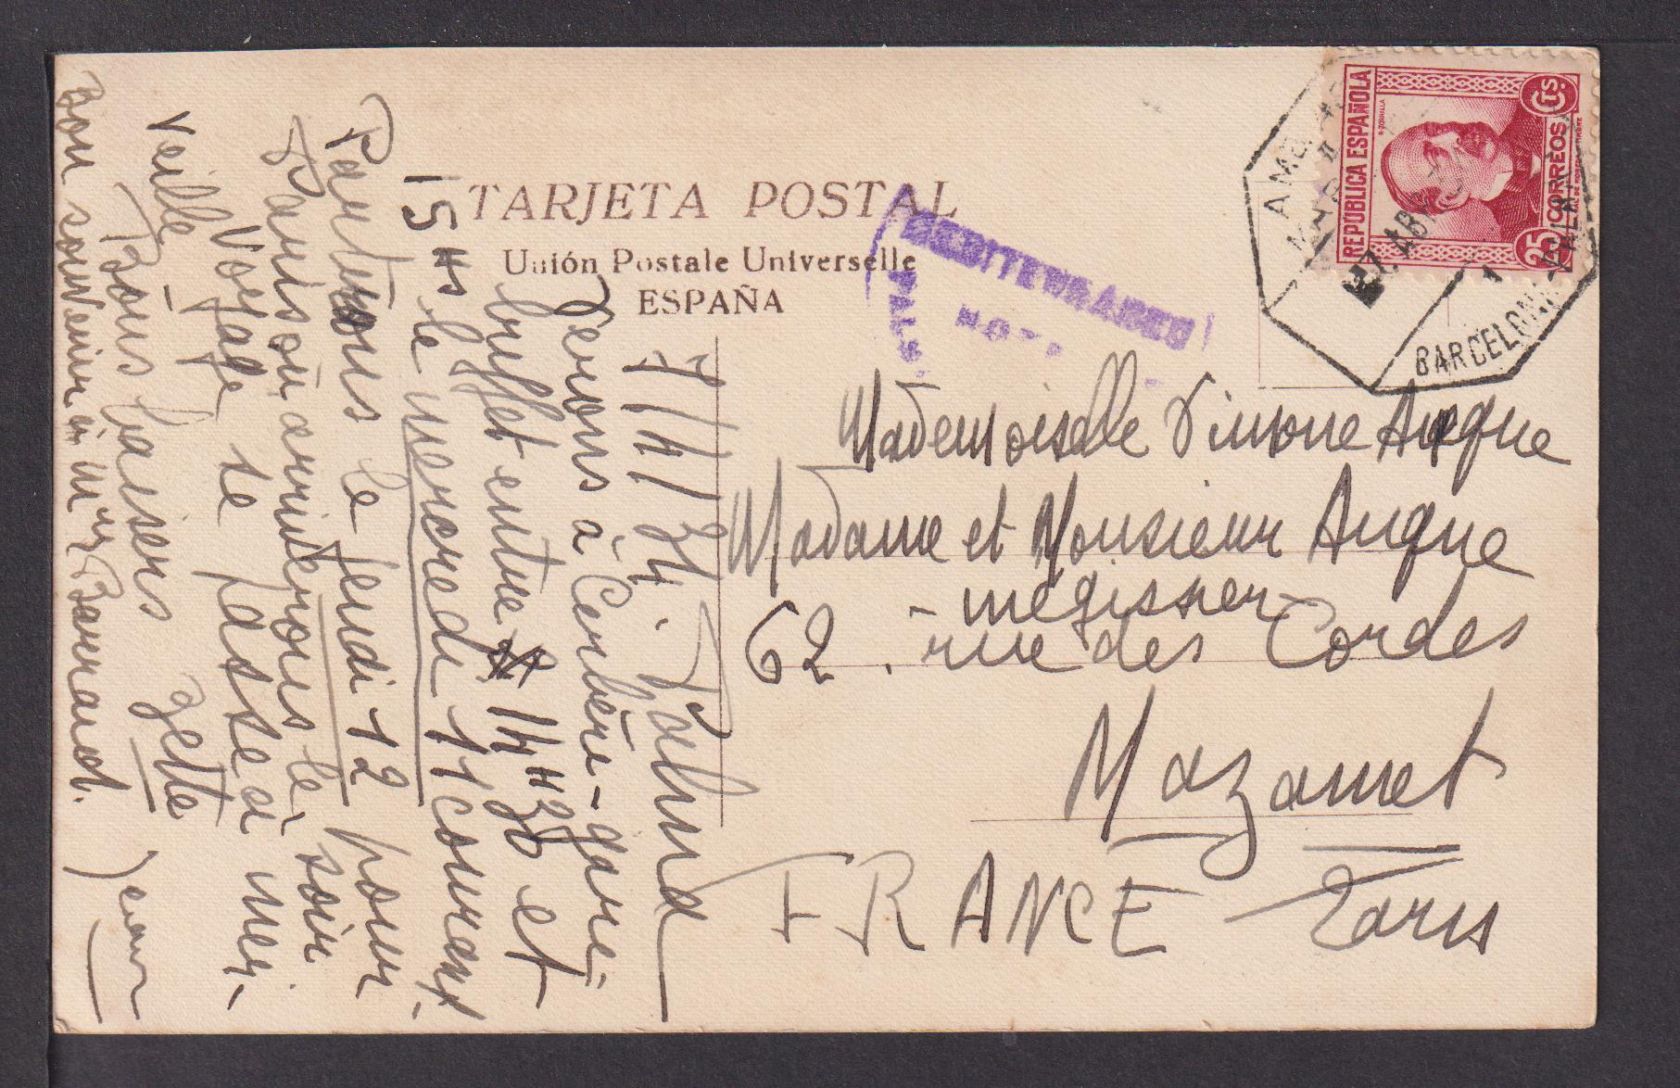 TARJETA POSTAL
Unión Postale Universelle
ESPAÑA
REPÚBLICA ESPAÑOLA
25 CORREOS Cts.
AMB
ABR
BARCELONA
MEDITERRANEO
7/4/34. Palma
Serons à Cerbère-gare-
buffet entre 14H30 et
15Hs le mercredi 11 courant
Partons le jeudi 12 pour
Paris où arriverons le soir
Voyage se passe à mer-
veille
Bons baisers
Bon souvenir à Mr Bernard. Jean
Mademoiselle Simone Auque
Madame et Monsieur Auque
- mégissier -
62. rue des Cordes
Mazamet
FRANCE - Tarn